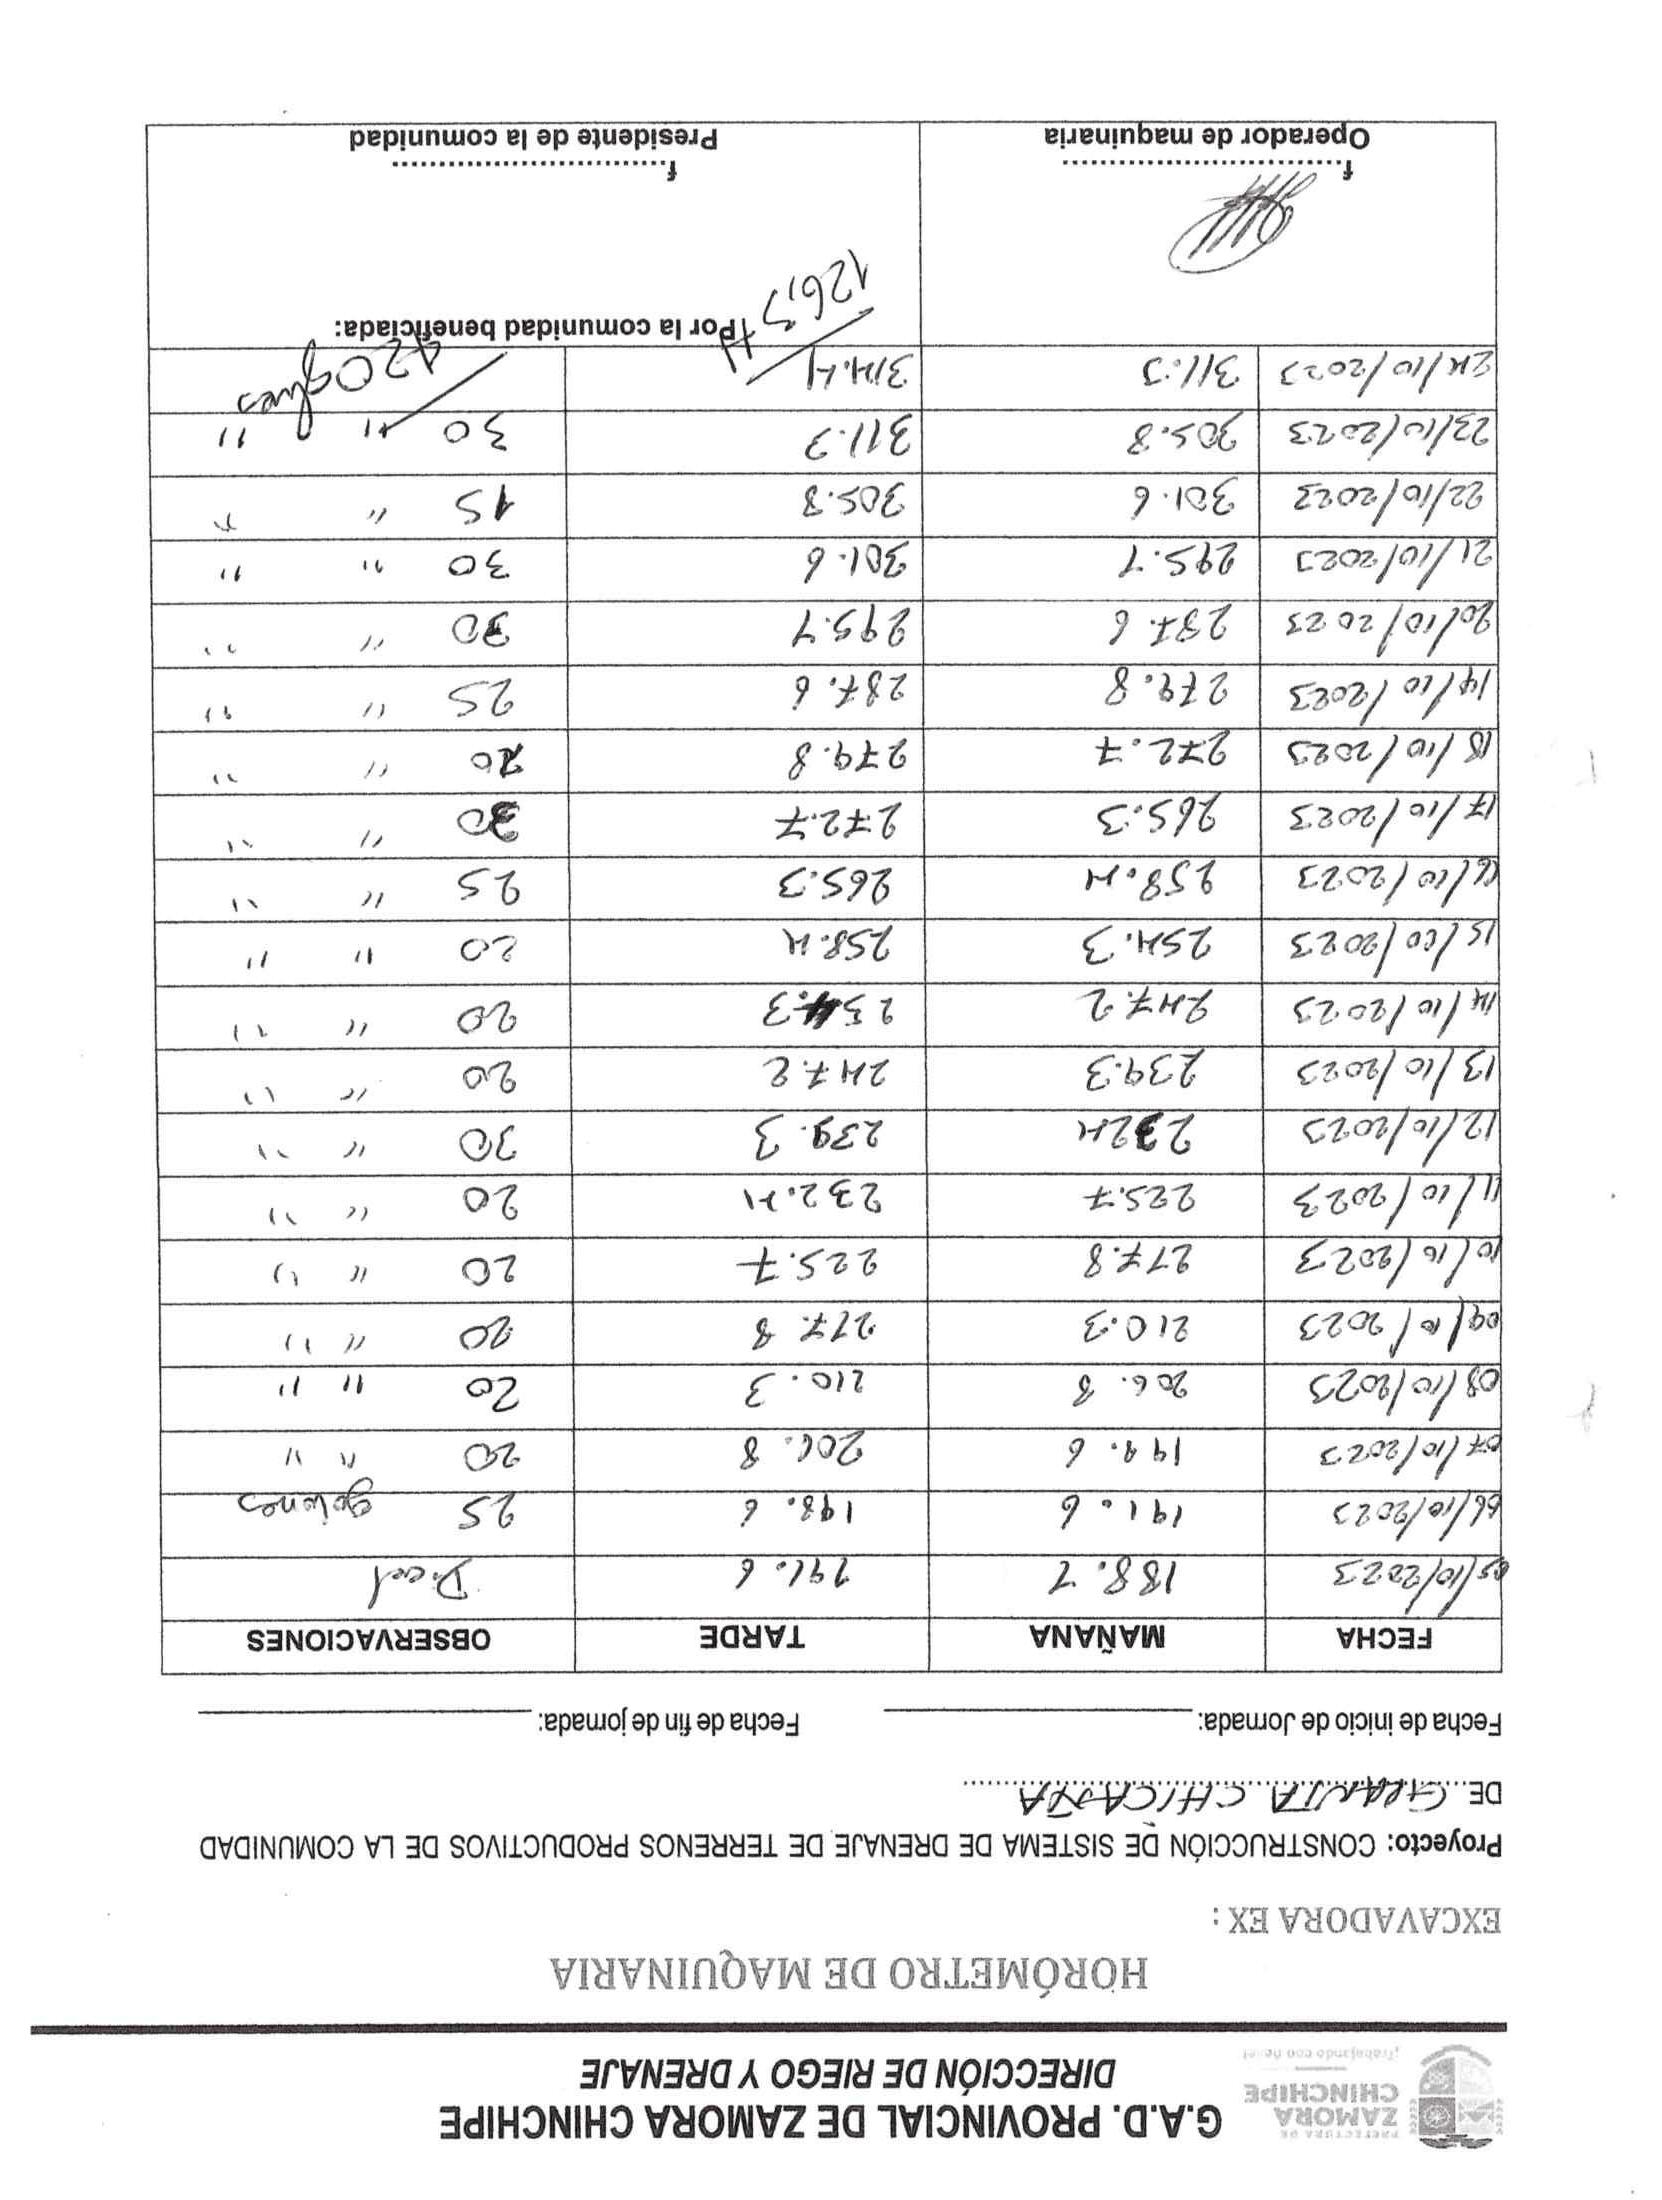 PREFECTURA DE
ZAMORA
CHINCHIPE
G.A.D. PROVINCIAL DE ZAMORA CHINCHIPE
DIRECCIÓN DE RIEGO Y DRENAJE
HORÓMETRO DE MAQUINARIA
EXCAVADORA EX :
Proyecto: CONSTRUCCIÓN DE SISTEMA DE DRENAJE DE TERRENOS PRODUCTIVOS DE LA COMUNIDAD
DE GRANJA CHICAÑA
Fecha de inicio de Jornada: Fecha de fin de jornada:
FECHA MAÑANA TARDE OBSERVACIONES
05/10/2023 188.7 191.6
06/10/2023 191.6 198.6 25 galones
07/10/2023 199.6 206.8 20 " "
08/10/2023 206.8 210.3 20 " "
09/10/2023 210.3 217.8 20 " "
10/10/2023 217.8 225.7 20 " "
11/10/2023 225.7 232.4 20 " "
12/10/2023 2324 239.3 30 " "
13/10/2023 239.3 247.2 20 " "
14/10/2023 247.2 254.3 20 " "
15/10/2023 254.3 258.4 20 " "
16/10/2023 258.4 265.3 25 " "
17/10/2023 265.3 272.7 30 " "
18/10/2023 272.7 279.8 20 " "
19/10/2023 279.8 287.6 25 " "
20/10/2023 287.6 295.7 30 " "
21/10/2023 295.7 301.6 30 " "
22/10/2023 301.6 305.8 15 " "
23/10/2023 305.8 311.3 30 " "
24/10/2023 311.3 314.4 420
Por la comunidad beneficiada:
126,7 H
f. f.
Operador de maquinaria Presidente de la comunidad